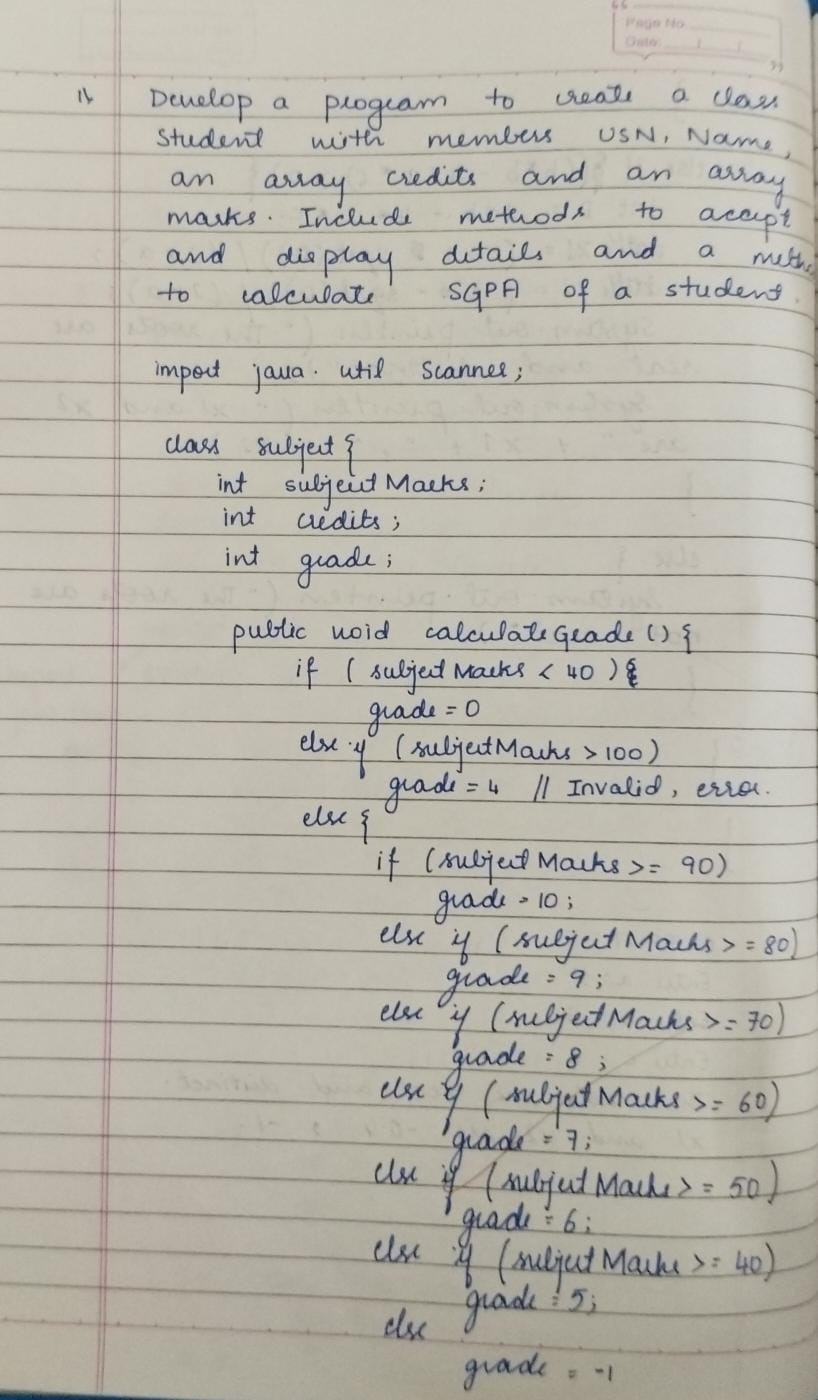 Page No
Date:
1)
Develop a program to create a class
Student with members USN, Name,
an array credits and an array
marks. Include methods to accept
and display details and a meth
to calculate SGPA of a student.
import java. util Scanner;
class subject {
int subjectMarks;
int credits;
int grade;
public void calculateGrade () {
if ( subjectMarks < 40 ) {
grade = 0
else if (subjectMarks > 100)
grade = 4 // Invalid, error.
else {
if (subjectMarks >= 90)
grade = 10;
else if (subjectMarks >= 80)
grade = 9;
else if (subjectMarks >= 70)
grade = 8;
else if (subjectMarks >= 60)
grade = 7;
else if (subjectMarks >= 50)
grade = 6;
else if (subjectMarks >= 40)
grade = 5;
else
grade = -1